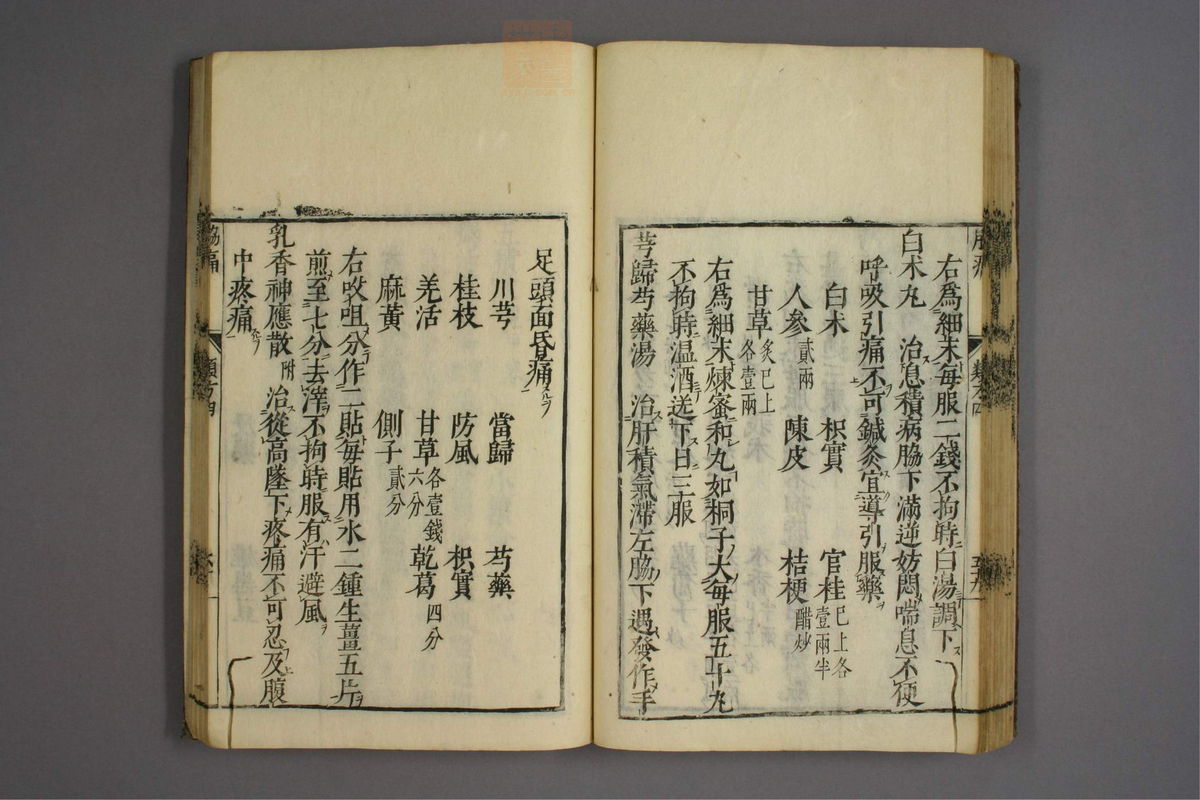 右為細末每服二錢不拘時白湯調下
白朮丸　治息積病脇下滿逆妨悶喘息不便
呼吸引痛不可鍼灸宜導引服藥
白朮　枳實　官桂已上各壹兩半
人參貳兩　陳皮　桔梗醋炒
甘草炙已上各壹兩
右為細末煉蜜和丸如桐子大每服五十丸
不拘時温酒送下日三服
芎歸芍藥湯　治肝積氣滯左脇下遇發作手
足頭面昏痛
川芎　當歸　芍藥
桂枝　防風　枳實
羌活　甘草各壹錢六分　乾葛四分
麻黄　側子貳分
右㕮咀分作二貼每貼用水二鍾生薑五片
煎至七分去滓不拘時服有汗避風
乳香神應散附　治從高墜下疼痛不可忍及腹
中疼痛
脇痛　類方四